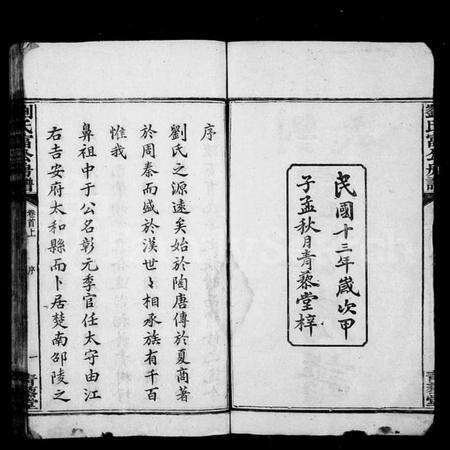 民國十三年歲次甲
子孟秋月青藜堂梓
劉氏
青藜堂
序
劉氏之源遠矣始於陶唐傳於夏商著
於周秦而盛於漢世〻相承族有千百
惟我
鼻祖中于公名彰元季官任太守由江
右吉安府太和縣而卜居楚南邵陵之
卷首上
序
一
青藜堂